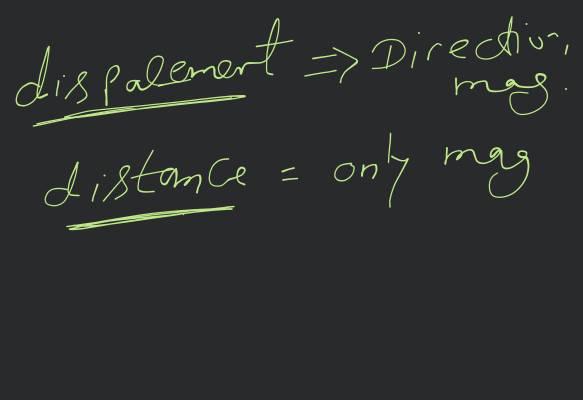 dispalement => Direction,
mag.
distance = only mag